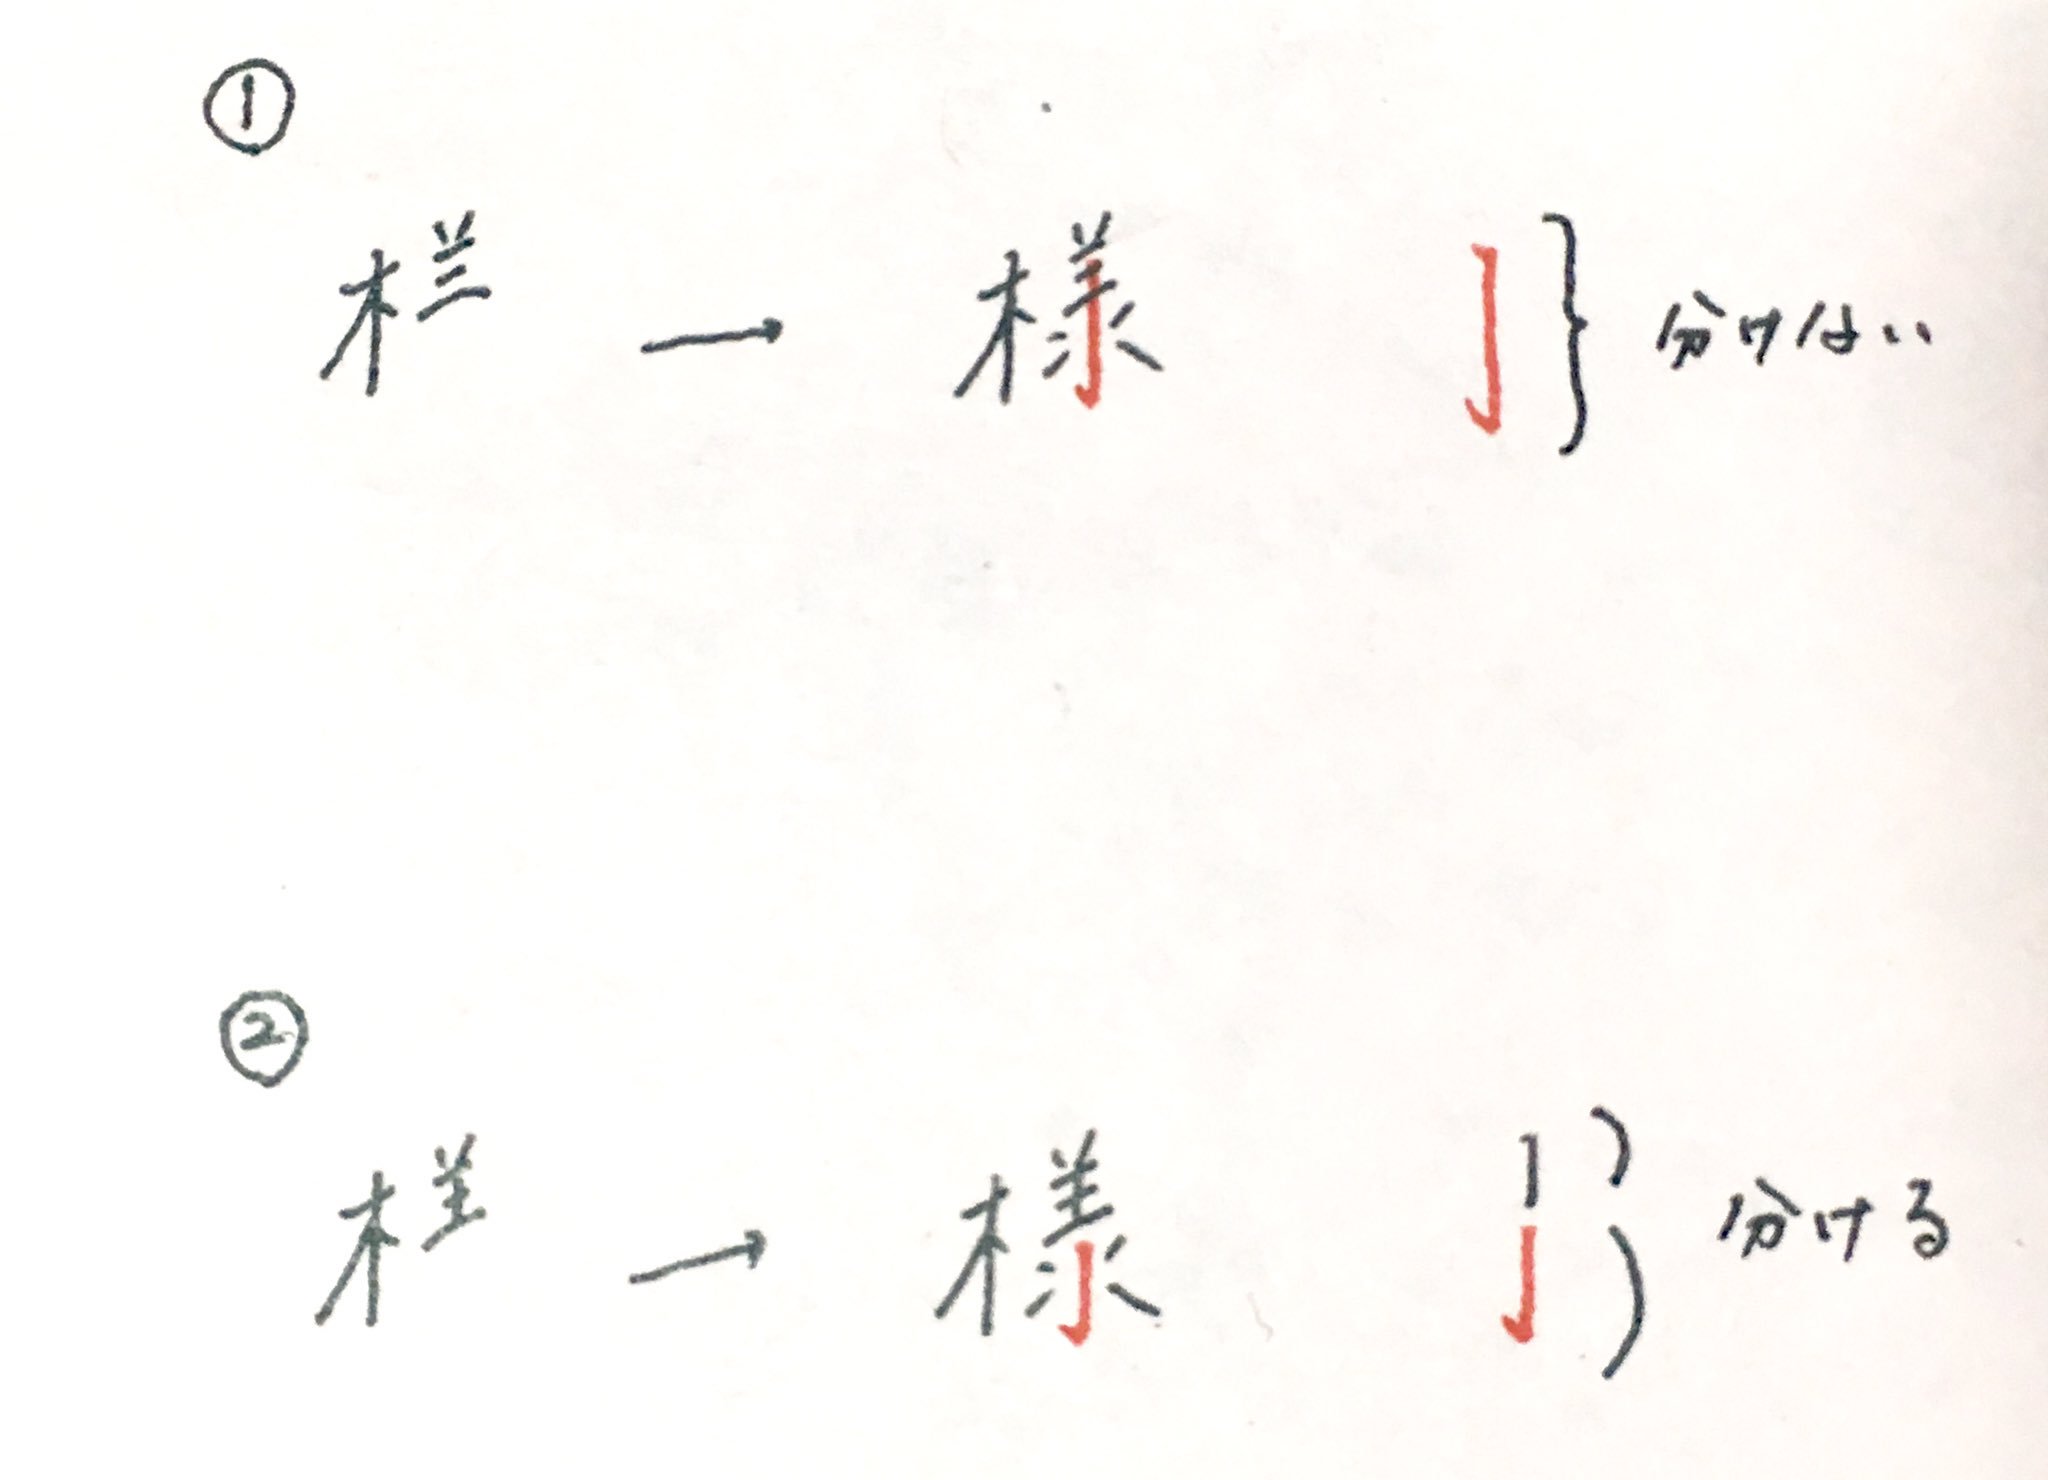 ①
栏 → 様 亅} 分けない
②
样 → 様 分ける